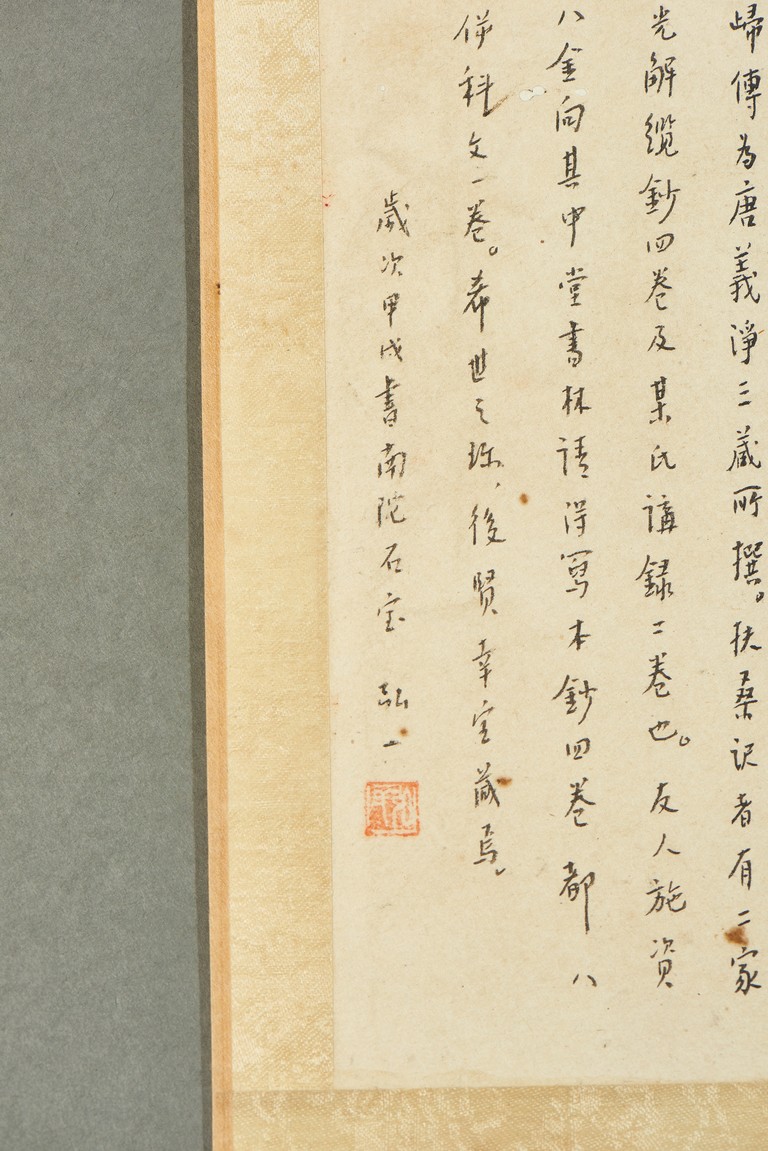 歸傳為唐義淨三藏所撰。扶桑記者有二家
光解纜鈔四卷及某氏講錄二卷也。友人施資
八金向其中堂書林請得寫本鈔四卷都八
併科文一卷。希世之珍、後賢幸宝藏焉。
歲次甲戌書南陀石室 弘一